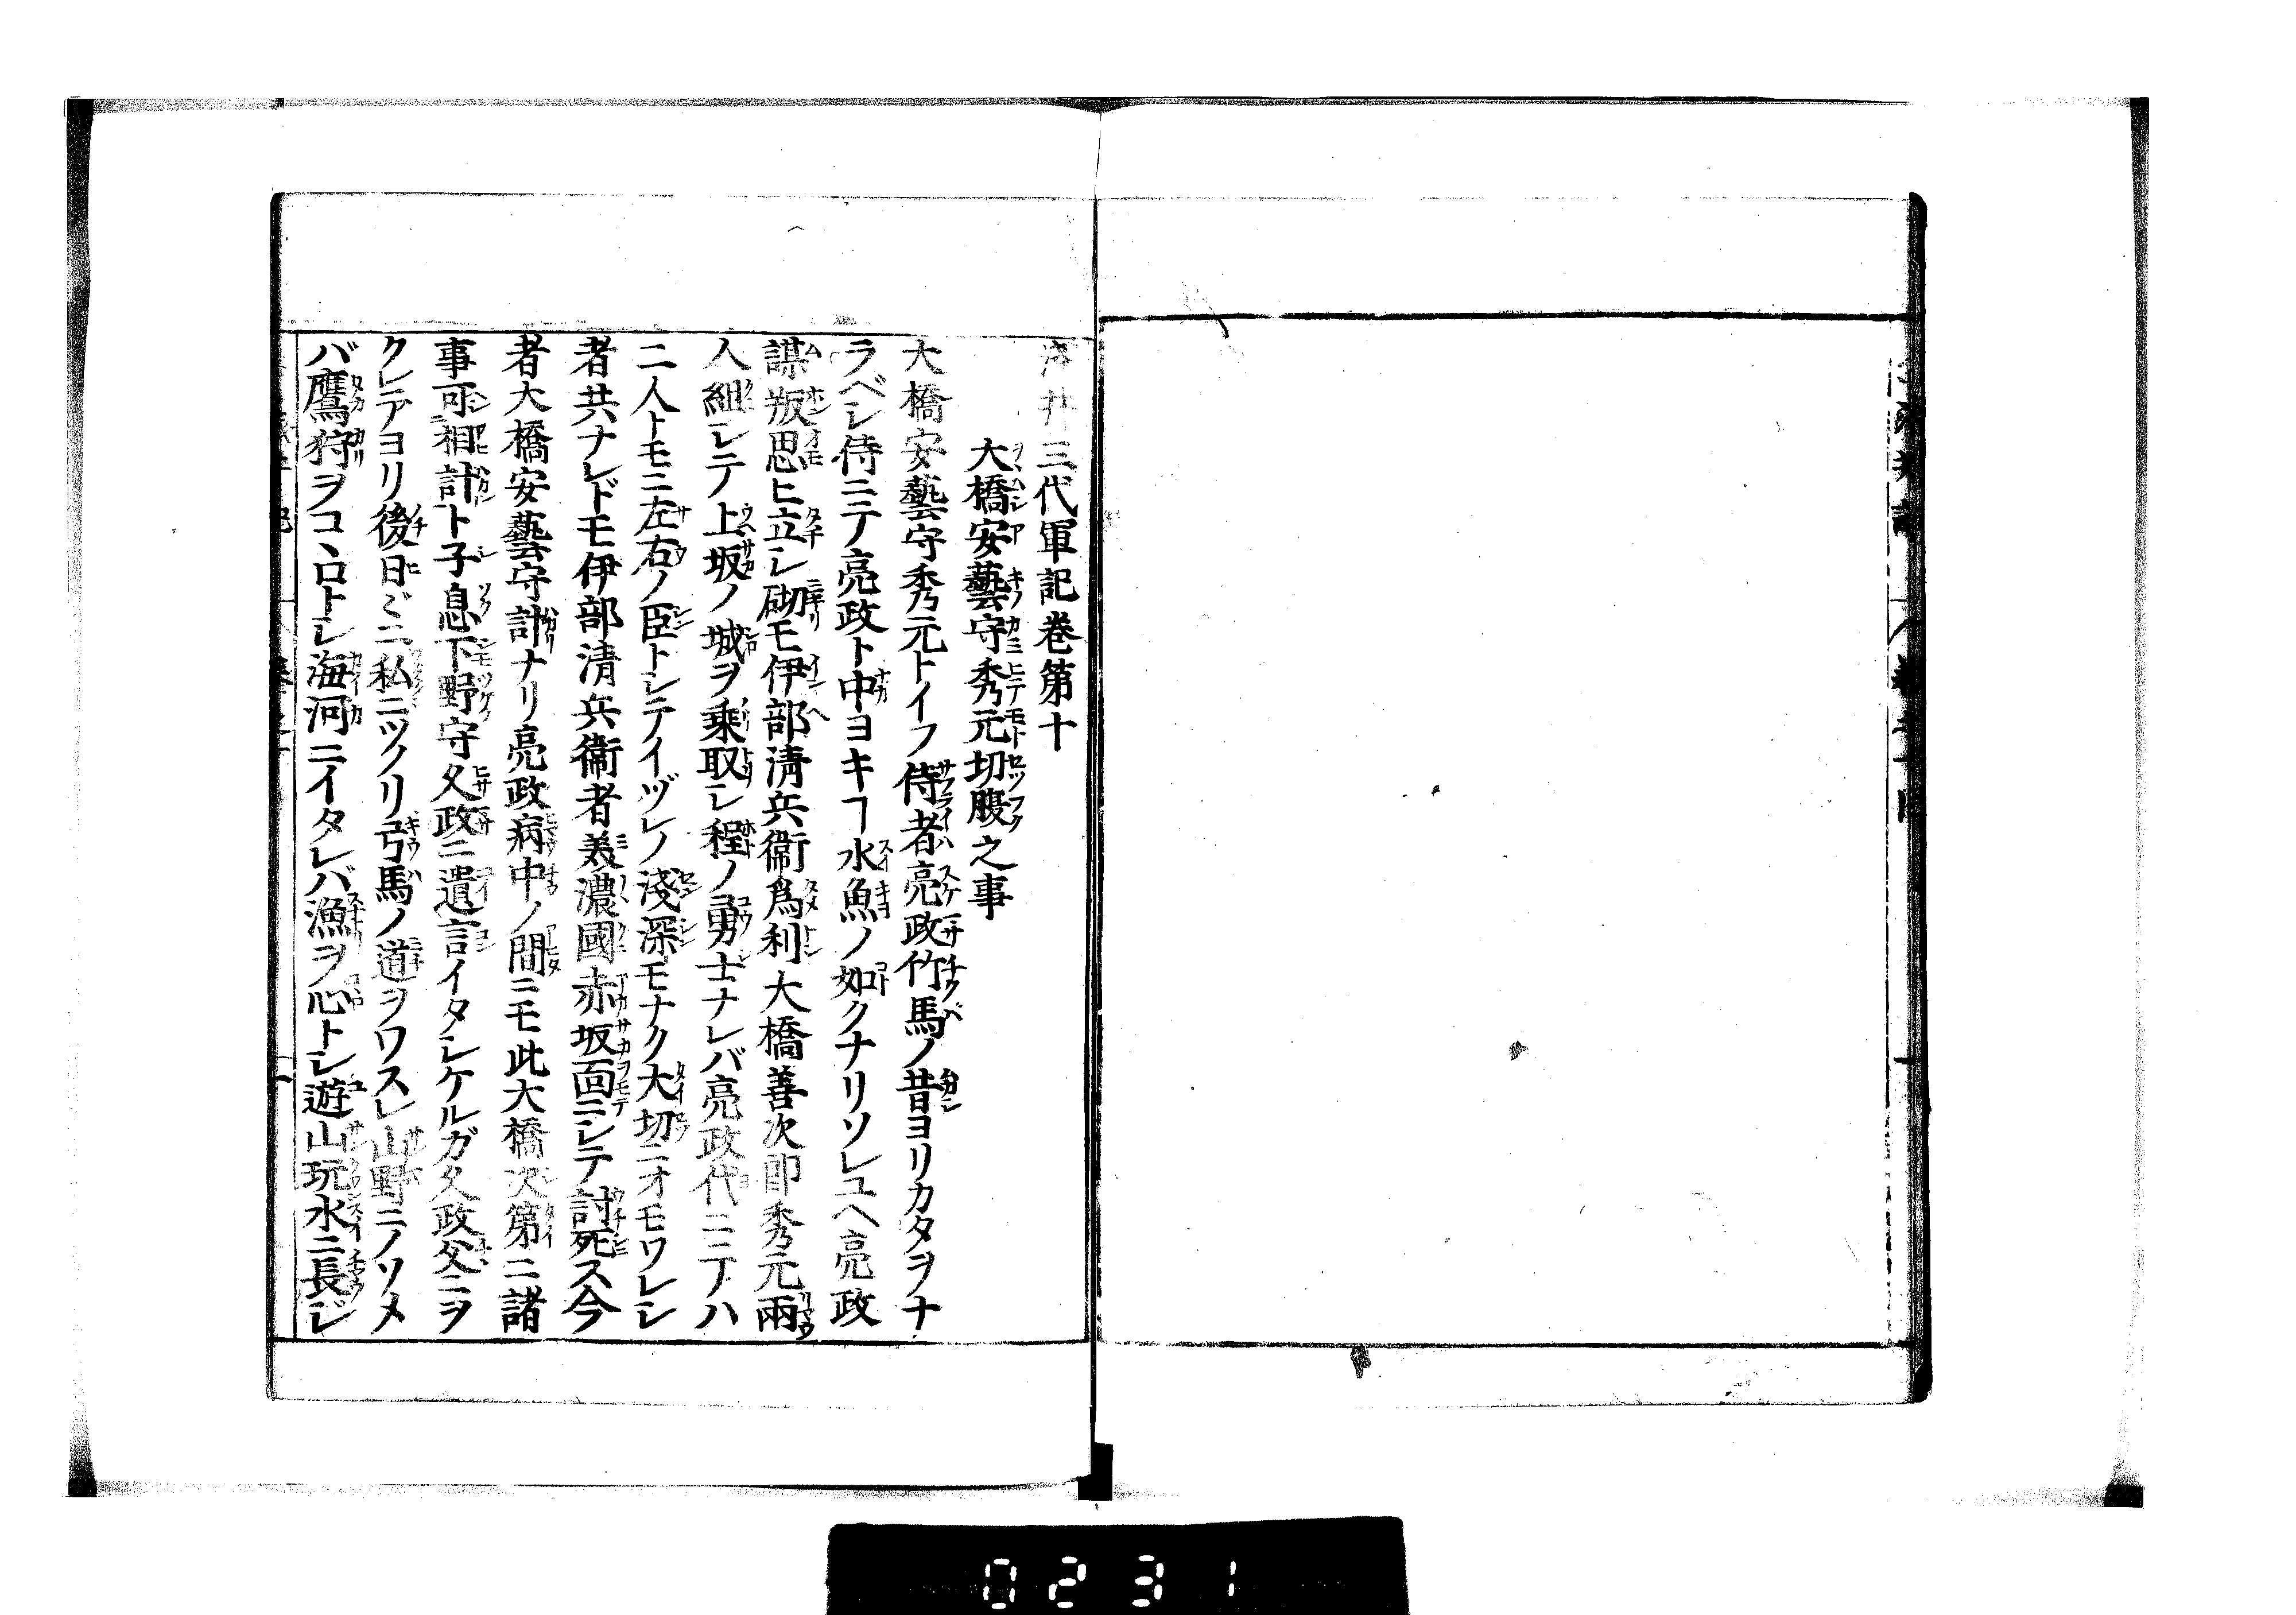 淺井三代軍記卷第十
大橋安藝守秀元切腹之事
大橋安藝守秀元トイフ侍者亮政竹馬ノ昔ヨリカタヲナ
ラベシ侍ニテ亮政ト中ヨキヿ水魚ノ如クナリソレユヘ亮政
謀叛思ヒ立シ砌モ伊部淸兵衞爲利大橋善次郎秀元兩
人組シテ上坂ノ城ヲ乗取シ程ノ勇士ナレバ亮政代ニテハ
二人トモニ左右ノ臣トシテイヅレノ淺深モナク大切ニオモワレシ
者共ナレドモ伊部清兵衞者美濃國赤坂面ニシテ討死ス今
者大橋安藝守計ナリ亮政病中ノ間ニモ此大橋次第ニ諸
事可相計ト子息下野守久政ニ遺言イタシケルガ久政父ニヲ
クレテヨリ後日ゞニ私ニツノリ弓馬ノ道ヲワスレ山野ニノソメ
バ鷹狩ヲコヽロトシ海河ニイタレバ漁ヲ心トシ遊山玩水ニ長ジ
0231